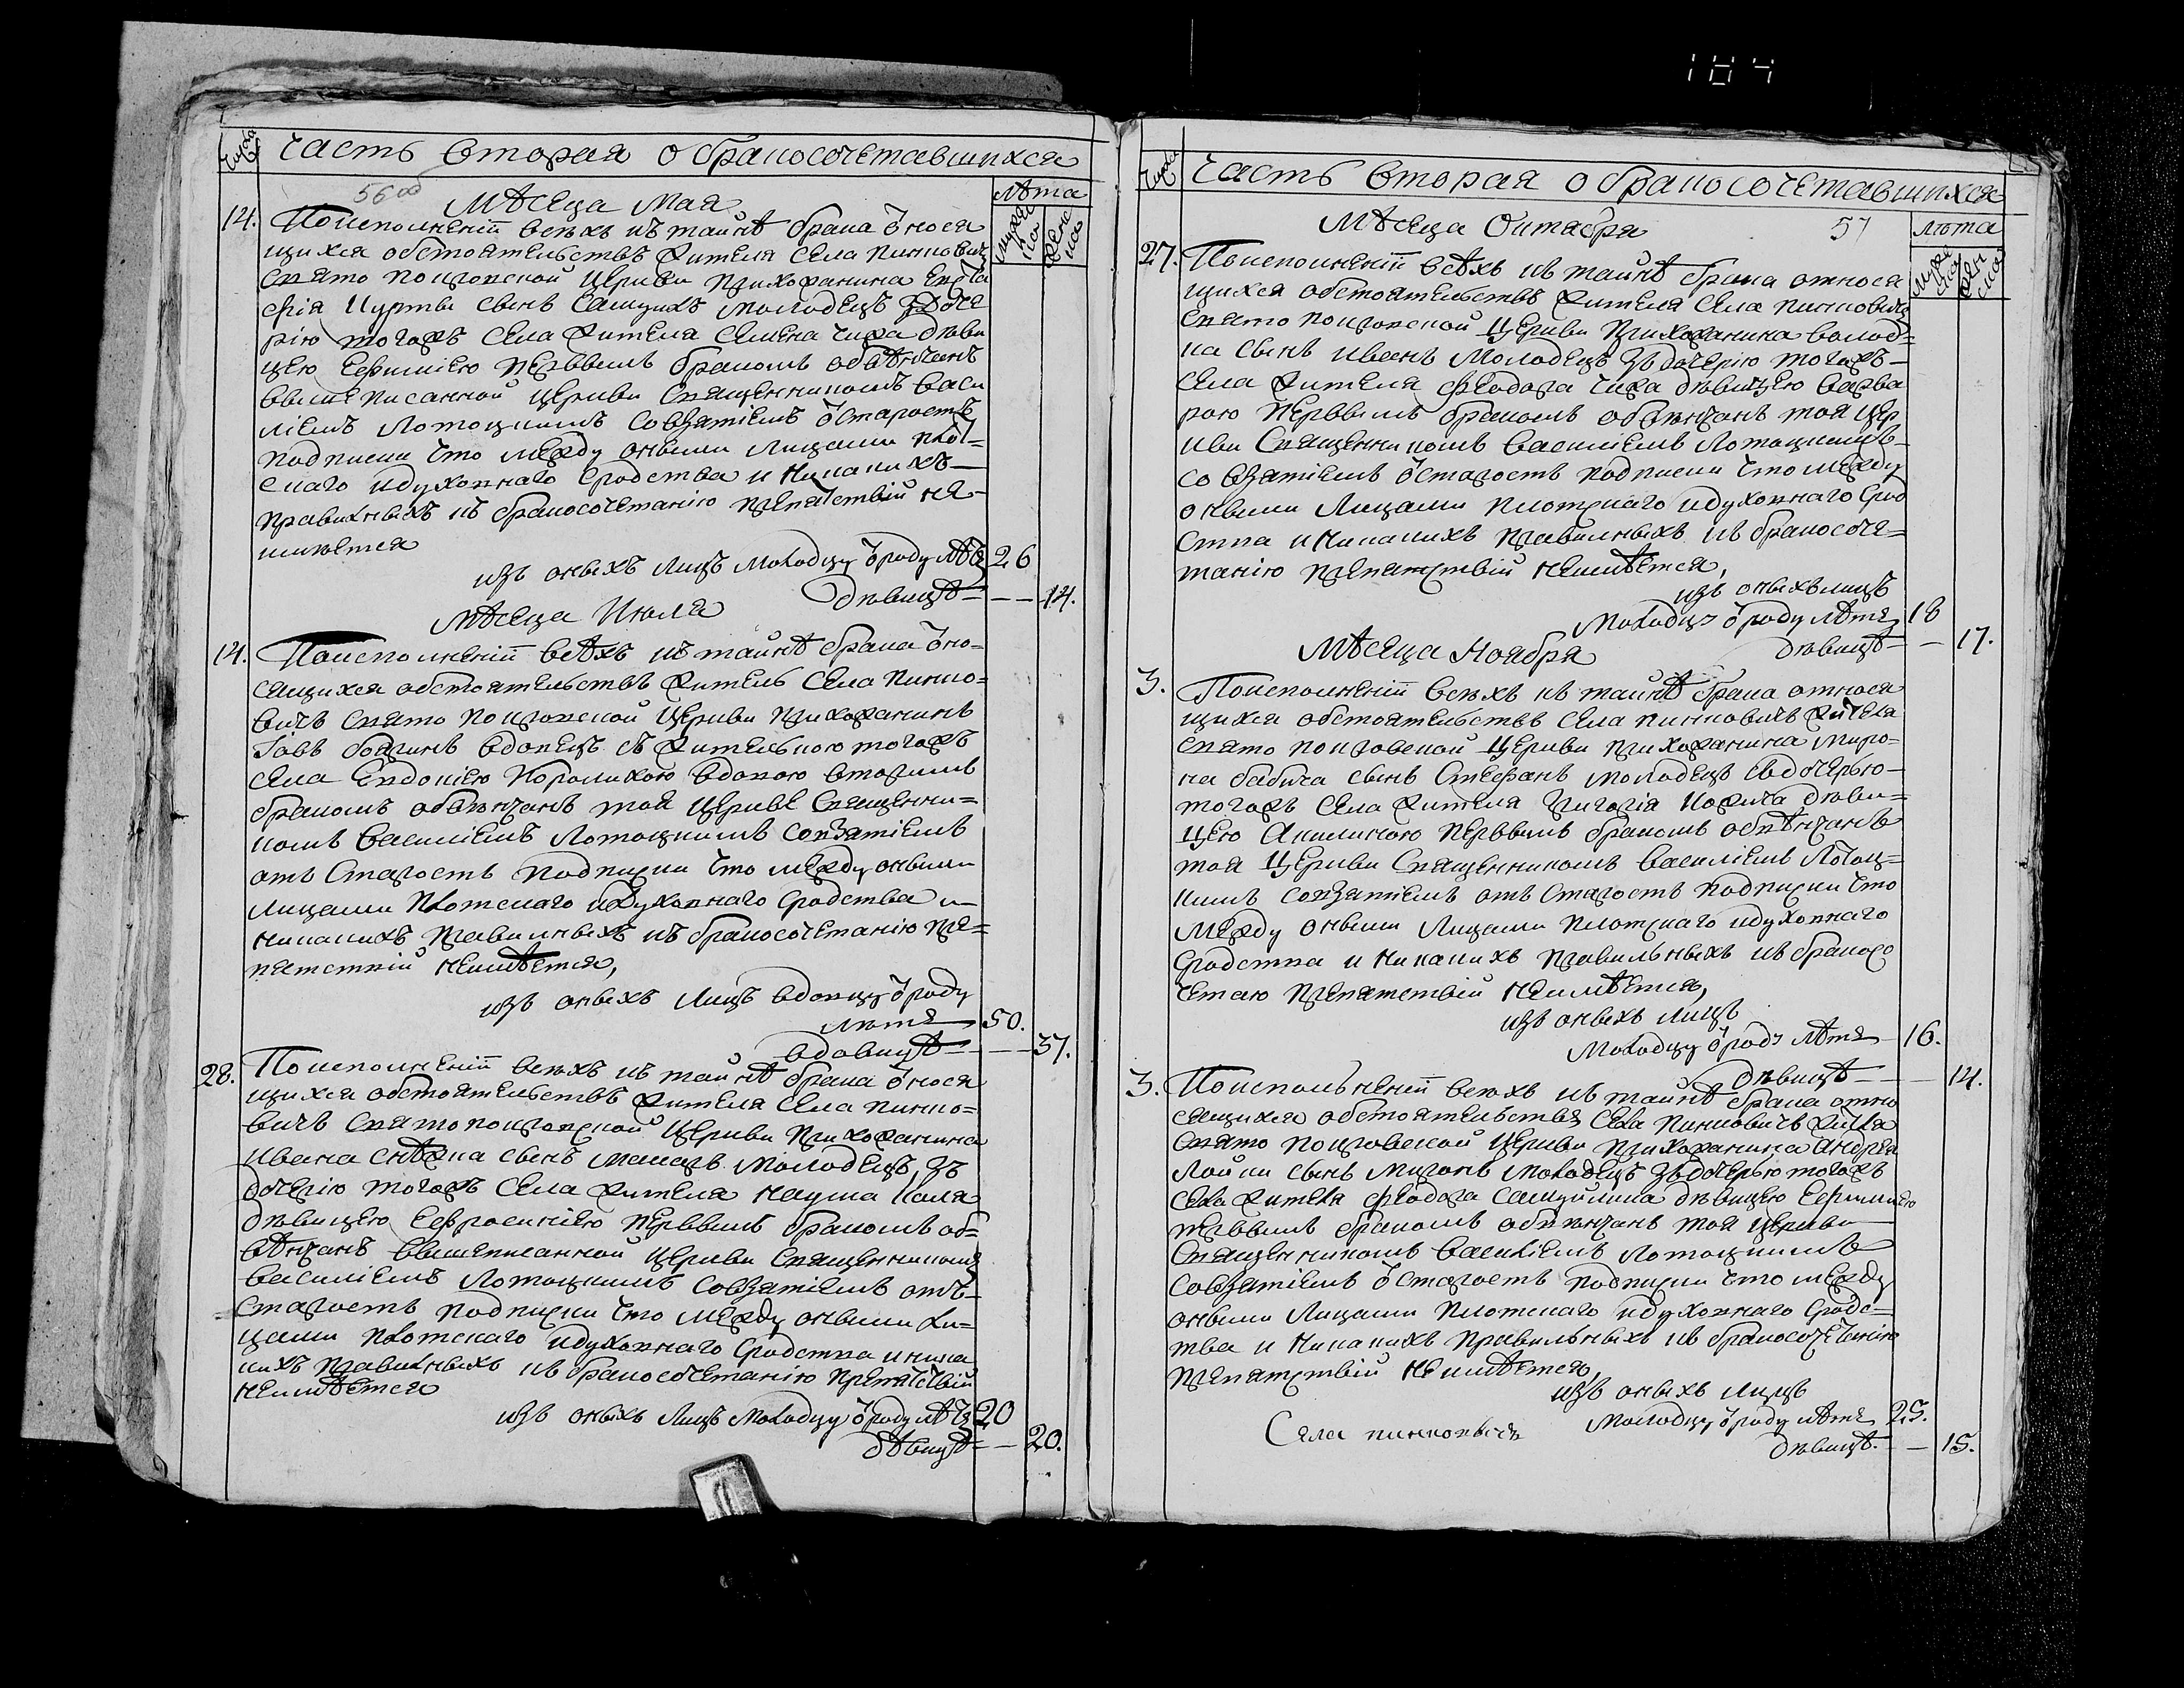 184
Числа
Часть вторая о бракосочетавшихся
56об
Мѣсеца Мая
Лѣта
мужеска
женска
14. Поисполненіи всѣхъ къ тайнѣ брака ѿнося
щихся обстоятельствъ жителя села Пинковичъ
Свято Покровской церкви прихожанина Евста
фія сынъ молодецъ з доче
рію тогожъ села жителя Семена Чижа дѣви
цею Евфиміею первымъ бракомъ обвѣнчанъ
вышеписанной церкви Священникомъ Васи
ліемъ Лотоцкимъ совзятіемъ ѿ старостъ
подписки что между оными лицами плот=
скаго идуховнаго сродства и никакихъ
правилныхъ къ бракосочетанію препятствій не=
имѣется
изъ оныхъ лицъ молодцу ѿ роду лѣтъ 26
дѣвицѣ — — 14.
Мѣсеца Июля
14. Поисполненіи всѣхъ къ тайнѣ брака ѿно=
сящихся обстоятельствъ житель села Пинко=
вичъ Свято Покровской церкви прихожанинъ
Іовъ вдовецъ съ жителькою тогожъ
села Евдокіею вдовою вторимъ
бракомъ обвѣнчанъ тоя церкве Священни=
комъ Василіемъ Лотоцкимъ совзятіемъ
отъ старостъ подписки что между оными
лицами плотскаго идуховнаго сродства и
никакихъ правилныхъ къ бракосочетанію пре=
пятствій неимѣется,
изъ оныхъ лицъ вдовцу ѿ роду
лѣтъ 50.
вдовицѣ — — 37.
28. Поисполненіи всѣхъ къ тайнѣ брака ѿнося
щихся обстоятельствъ жителя села Пинко=
вичъ Святопокровской церкви прихожанина
Ивана Снѣжка сынъ Макаръ молодецъ, зъ
дочерію тогожъ села жителя Наума
дѣвицею Ефросиніею первымъ бракомъ об=
вѣнчанъ вышеписанной церкви Священникомъ
Василіемъ Лотоцкимъ совзятіемъ отъ
старостъ подписки что между оными ли=
цами плотскаго идуховнаго сродства иника
кихъ правилныхъ къ бракосочетанію препятствій
неимѣется
изъ оныхъ лицъ молодцу ѿ роду лѣтъ 20
дѣвицѣ — 20.
Числа
Часть вторая о бракосочетавшихся
Мѣсеца Октабря
57
лѣта
мужеска
женска
27. Поисполненіи всѣхъ къ тайнѣ брака относя
щихся обстоятельствъ жителя села Пинковичъ
Свято Покровской церкви прихожанина Волод=
ка сынъ Иванъ молодецъ зъ дочерію тогожъ
села жителя Феодора Чижа дѣвицею Варва
рою первымъ бракомъ обвѣнчанъ тоя цер
кви Священникомъ Василіемъ Лотоцкимъ
совзятіемъ ѿ старостъ подписки что между
оными лицами плотскаго идуховнаго срод
ства и никакихъ правилныхъ къ бракосоче=
танію препятствій неимѣется,
изъ оныхъ лицъ
молодцу ѿ роду лѣтъ 18
дѣвицѣ — 17.
Мѣсеца Ноября
3. Поисполненіи всѣхъ къ тайнѣ брака относя
щихся обстоятельствъ села Пинковичъ жителя
Свято Покровской церкви прихожанина Миро=
на Бабича сынъ Стефанъ молодецъ сдочерью
тогожъ села жителя Григорія дѣви=
цею Акилиною первымъ бракомъ обвѣнчанъ
тоя церкви Священникомъ Василіемъ Лотоц=
кимъ совзятіемъ отъ старостъ подписки что
между оными лицами плотскаго идуховнаго
сродства и никакихъ правильныхъ къ бракосо
четаю препятствій неимѣется,
изъ оныхъ лицъ
молодцу ѿ роду лѣтъ 16.
дѣвицѣ — 14.
3. Поисполненіи всѣхъ къ тайнѣ брака отно
сящихся обстоятельствъ села Пинковичъ жителя
Свято Покровской церкви прихожанина Андрея
сынъ Миронъ молодецъ зъ дочерью тогожъ
села жителя Феодора дѣвицею Евфиміею
первымъ бракомъ обвѣнчанъ тоя церкви
Священникомъ Василіемъ Лотоцкимъ
совзятіемъ ѿ старостъ подписки что между
оными лицами плотскаго идуховнаго сродс=
тва и никакихъ правильныхъ къ бракосочетанію
препятствій неимѣется,
изъ оныхъ лицъ
молодцу ѿ роду лѣтъ 25.
Села Пинковичъ
дѣвицѣ — 15.